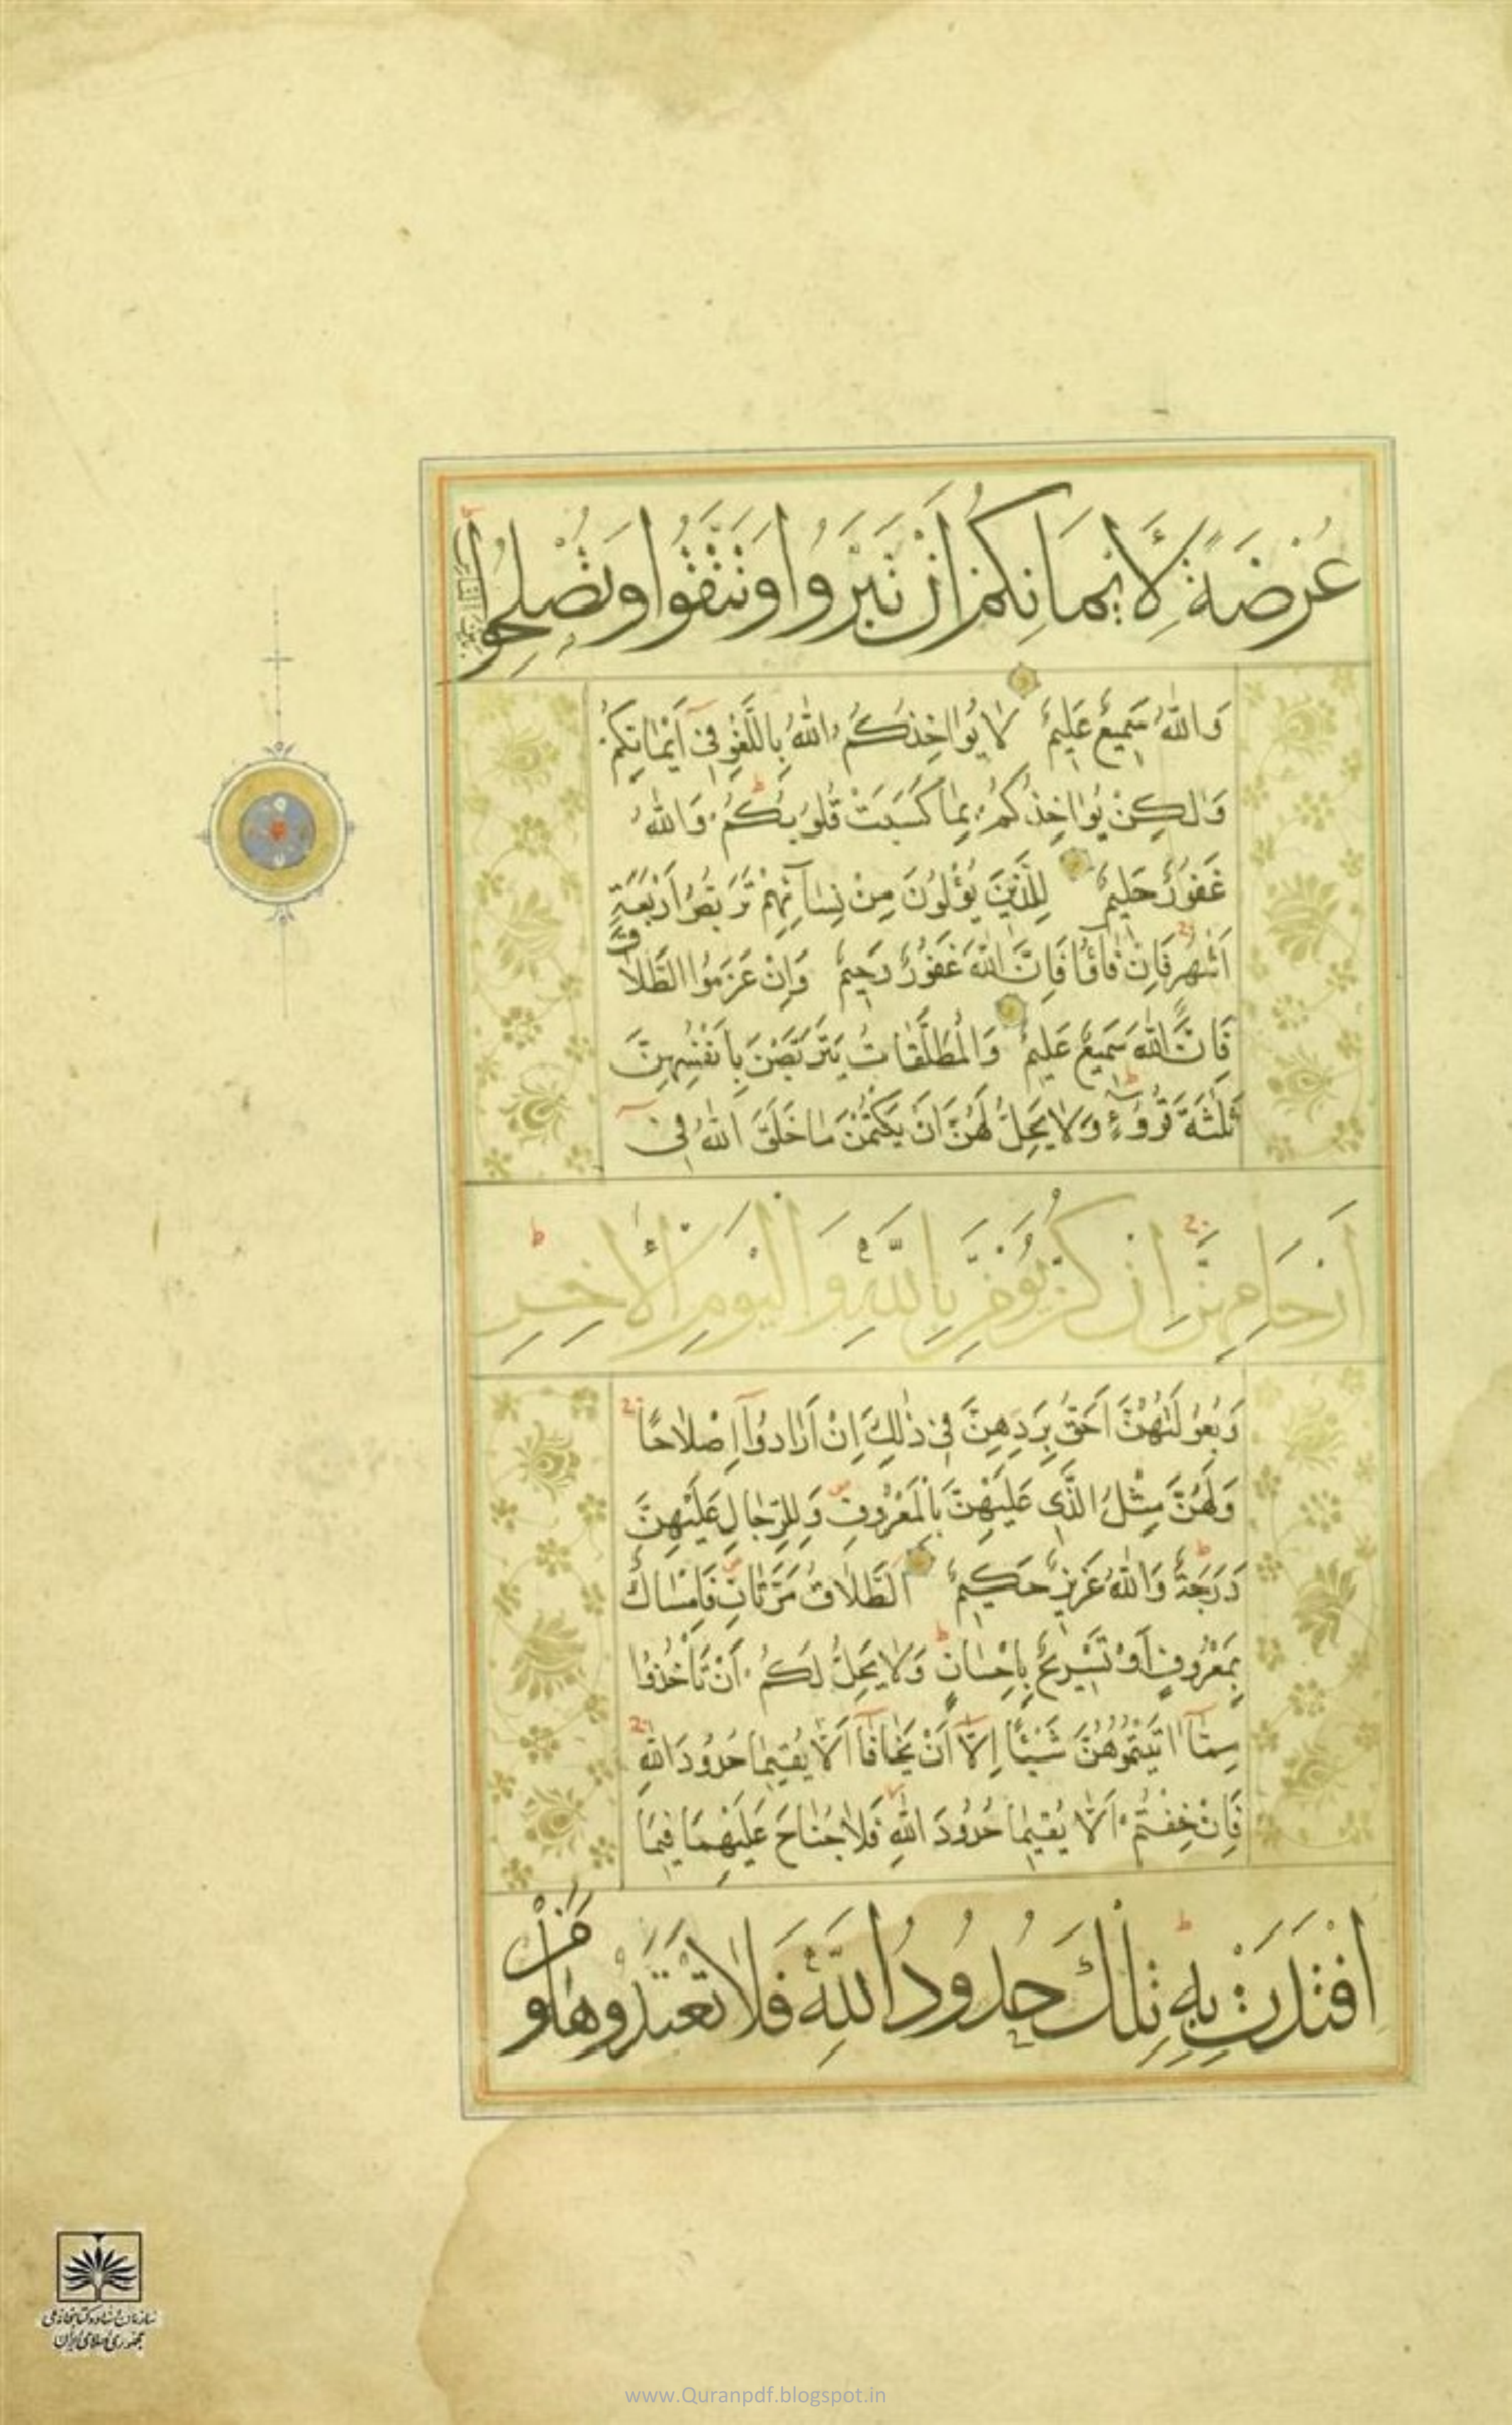 عُرْضَةً لِأَيْمَانِكُمْ أَنْ تَبَرُّوا وَتَتَّقُوا وَتُصْلِحُوا بَيْنَ النَّاسِ
وَاللّٰهُ سَمِيعٌ عَلِيمٌ لَا يُؤَاخِذُكُمُ اللّٰهُ بِاللَّغْوِ فِي أَيْمَانِكُمْ
وَلٰكِنْ يُؤَاخِذُكُمْ بِمَا كَسَبَتْ قُلُوبُكُمْ وَاللّٰهُ
غَفُورٌ حَلِيمٌ لِلَّذِينَ يُؤْلُونَ مِنْ نِسَآئِهِمْ تَرَبُّصُ أَرْبَعَةِ
أَشْهُرٍ فَإِنْ فَاؤُا فَإِنَّ اللّٰهَ غَفُورٌ رَحِيمٌ وَإِنْ عَزَمُوا الطَّلَاقَ
فَإِنَّ اللّٰهَ سَمِيعٌ عَلِيمٌ وَالْمُطَلَّقَاتُ يَتَرَبَّصْنَ بِأَنْفُسِهِنَّ
ثَلٰثَةَ قُرُوءٍ وَلَا يَحِلُّ لَهُنَّ أَنْ يَكْتُمْنَ مَا خَلَقَ اللّٰهُ فِي
أَرْحَامِهِنَّ إِنْ كُنَّ يُؤْمِنَّ بِاللّٰهِ وَالْيَوْمِ الْأٰخِرِ
وَبُعُولَتُهُنَّ أَحَقُّ بِرَدِّهِنَّ فِي ذٰلِكَ إِنْ أَرَادُوٓا إِصْلَاحًا
وَلَهُنَّ مِثْلُ الَّذِي عَلَيْهِنَّ بِالْمَعْرُوفِ وَلِلرِّجَالِ عَلَيْهِنَّ
دَرَجَةٌ وَاللّٰهُ عَزِيزٌ حَكِيمٌ الطَّلَاقُ مَرَّتَانِ فَإِمْسَاكٌ
بِمَعْرُوفٍ أَوْ تَسْرِيحٌ بِإِحْسَانٍ وَلَا يَحِلُّ لَكُمْ أَنْ تَأْخُذُوا
مِمَّآ اٰتَيْتُمُوهُنَّ شَيْئًا إِلَّآ أَنْ يَخَافَآ أَلَّا يُقِيمَا حُدُودَ اللّٰهِ
فَإِنْ خِفْتُمْ أَلَّا يُقِيمَا حُدُودَ اللّٰهِ فَلَا جُنَاحَ عَلَيْهِمَا فِيمَا
افْتَدَتْ بِهِ تِلْكَ حُدُودُ اللّٰهِ فَلَا تَعْتَدُوهَا وَمَنْ
سازمان اسناد و کتابخانه ملی
جمهوری اسلامی ایران
www.Quranpdf.blogspot.in